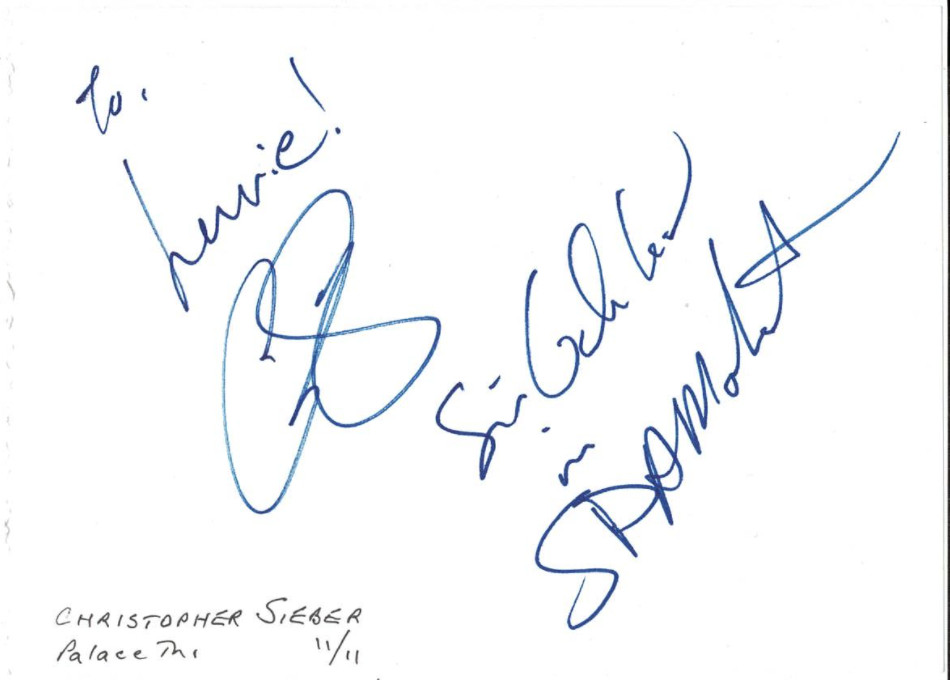 To.
Lewie!
Sir Galahad
in
SPAMalot
CHRISTOPHER SIEBER
Palace Th. 11/11